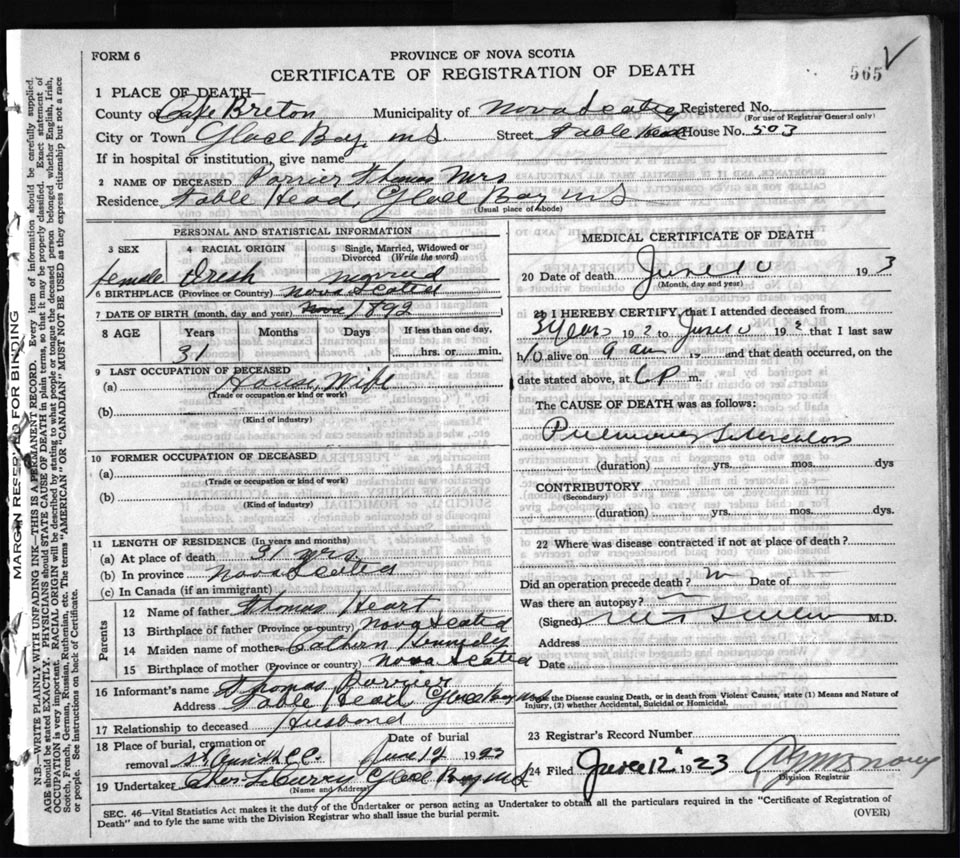 FORM 6
PROVINCE OF NOVA SCOTIA
CERTIFICATE OF REGISTRATION OF DEATH
565
1 PLACE OF DEATH—
County of Cape Breton Municipality of Nova Scotia Registered No.
(For use of Registrar General only)
City or Town Glace Bay NS Street Table Head House No. 503
If in hospital or institution, give name
2 NAME OF DECEASED Porrier Thomas Mrs
Residence Table Head, Glace Bay NS
(Usual place of abode)
PERSONAL AND STATISTICAL INFORMATION
3 SEX 4 RACIAL ORIGIN 5 Single, Married, Widowed or Divorced (Write the word)
female Iresh married
6 BIRTHPLACE (Province or Country) Nova Scotia
7 DATE OF BIRTH (month, day and year) 1892
8 AGE Years Months Days If less than one day,
31 hrs. or min.
9 LAST OCCUPATION OF DECEASED
(a) House Wife
(Trade or occupation or kind or work)
(b)
(Kind of industry)
10 FORMER OCCUPATION OF DECEASED
(a)
(Trade or occupation or kind of work)
(b)
(Kind of industry)
11 LENGTH OF RESIDENCE (In years and months)
(a) At place of death 31 yrs
(b) In province Nova Scotia
(c) In Canada (if an immigrant)
Parents
12 Name of father Thomas Heart
13 Birthplace of father (Province or country) Nova Scotia
14 Maiden name of mother Cathern Kennedy
15 Birthplace of mother (Province or country) Nova Scotia
16 Informant's name Thomas Porrier
Address Table Head Glace Bay NS
17 Relationship to deceased Husband
18 Place of burial, cremation or removal St Annes C C Date of burial June 12 1923
19 Undertaker Curry Glace Bay NS
(Name and Address)
MEDICAL CERTIFICATE OF DEATH
20 Date of death June 10 192 3
(Month, day and year)
21 I HEREBY CERTIFY, that I attended deceased from
192 to June 10 192 that I last saw
h alive on 9 am 19 and that death occurred, on the
date stated above, at P m.
The CAUSE OF DEATH was as follows:
Pulmonary Tuberculosis
(duration) yrs. mos. dys
CONTRIBUTORY
(Secondary)
(duration) yrs. mos. dys.
22 Where was disease contracted if not at place of death?
Did an operation precede death? no Date of
Was there an autopsy?
(Signed) M.D.
Address
Date
State the Disease causing Death, or in death from Violent Causes, state (1) Means and Nature of Injury, (2) whether Accidental, Suicidal or Homicidal.
23 Registrar's Record Number
24 Filed June 12 1923
Division Registrar
SEC. 46—Vital Statistics Act makes it the duty of the Undertaker or person acting as Undertaker to obtain all the particulars required in the "Certificate of Registration of
Death" and to fyle the same with the Division Registrar who shall issue the burial permit. (OVER)
MARGIN RESERVED FOR BINDING
N.B.—WRITE PLAINLY WITH UNFADING INK—THIS IS A PERMANENT RECORD. Every item of information should be carefully supplied.
AGE should be stated EXACTLY. PHYSICIANS should STATE CAUSE OF DEATH in plain terms, so that it may be properly classified. Exact statement of
OCCUPATION is very important. RACIAL ORIGIN will be described by stating to what people or tongue the deceased person belonged whether English, Irish,
Scotch, French, German, Russian, Ruthenian, etc. The terms "AMERICAN" OR "CANADIAN" MUST NOT BE USED as they express citizenship but not a race
or people. See instructions on back of Certificate.